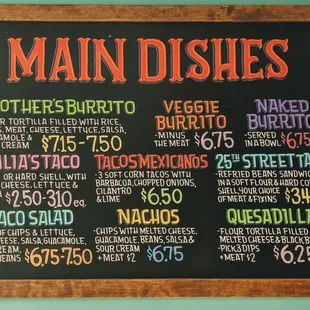 MAIN DISHES
OTHER'S BURRITO
R TORTILLA FILLED WITH RICE,
S, MEAT, CHEESE, LETTUCE, SALSA,
AMOLE &
CREAM $7.15-7.50
VEGGIE
BURRITO
-MINUS
THE MEAT $6.75
NAKED
BURRITO
-SERVED
IN A BOWL $6.75
LIA'S TACO
OR HARD SHELL, WITH
CHEESE, LETTUCE &
$2.50-3.10 ea.
TACOS MEXICANOS
-3 SOFT CORN TACOS WITH
BARBACOA, CHOPPED ONIONS,
CILANTRO
& LIME $6.50
25TH STREET TA
-REFRIED BEANS SANDWIC
IN A SOFT FLOUR & HARD CO
SHELL, YOUR CHOICE
OF MEAT & FIXINS $3.4
ACO SALAD
OF CHIPS & LETTUCE,
CHEESE, SALSA, GUACAMOLE,
REAM,
EANS $6.75-7.50
NACHOS
-CHIPS WITH MEAT, MELTED CHEESE,
GUACAMOLE, BEANS, SALSA &
SOUR CREAM
+ MEAT $2 $6.75
QUESADILL
-FLOUR TORTILLA FILLED
MELTED CHEESE & BLACK B
-PICK 3 DIPS
+MEAT $2 $6.25